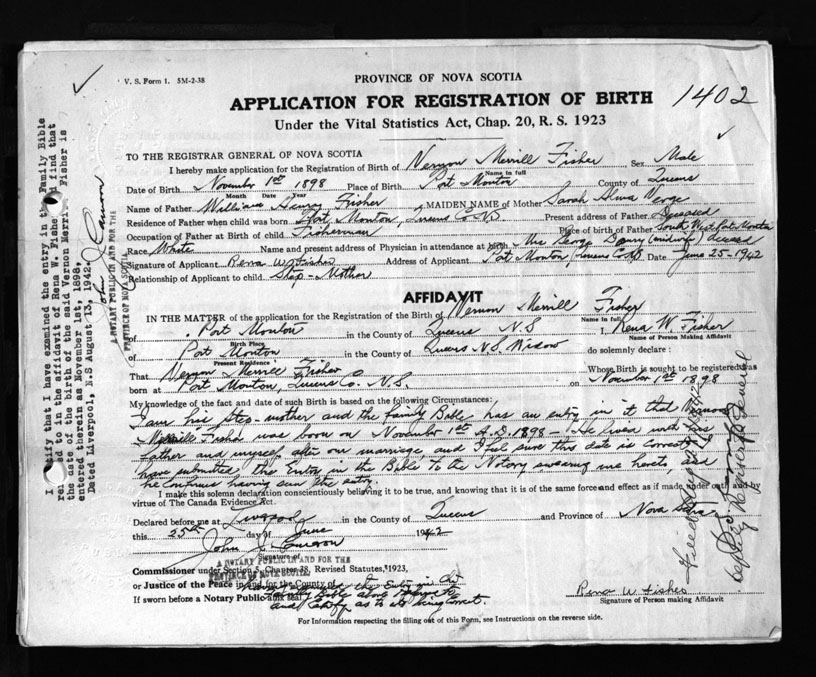 V. S. Form 1. 5M-2-38
PROVINCE OF NOVA SCOTIA
APPLICATION FOR REGISTRATION OF BIRTH 1402
Under the Vital Statistics Act, Chap. 20, R. S. 1923
TO THE REGISTRAR GENERAL OF NOVA SCOTIA
I hereby make application for the Registration of Birth of Vernon Merrill Fisher Sex Male
Name in full
Date of Birth November 1st 1898 Place of Birth Port Mouton County of Queens
Month Date Year
Name of Father William Henry Fisher MAIDEN NAME of Mother Sarah
Residence of Father when child was born Port Mouton, Queens Co. N.S. Present address of Father Deceased
Occupation of Father at Birth of child Fisherman Place of birth of Father South West Port Mouton
Race White Name and present address of Physician in attendance at birth Mrs George (midwife) Deceased
Signature of Applicant Rena W. Fisher Address of Applicant Port Mouton, Queens Co. N.S. Date June 25-1942
Relationship of Applicant to child Step-Mother
AFFIDAVIT
IN THE MATTER of the application for Registration of the Birth of Vernon Merrill Fisher
Name in full
of Port Mouton in the County of Queens N.S I, Rena W. Fisher
Birth Place Name of Person Making Affidavit
of Port Mouton in the County of Queens N.S. Widow do solemnly declare:
Present Residence
That Vernon Merrill Fisher Whose Birth is sought to be registered was
born at Port Mouton, Queens Co. N.S. on November 1st 1898
My knowledge of the fact and date of such Birth is based on the following Circumstances:
I am his step-mother and the family Bible has an entry in it that Vernon
Merrill Fisher was born on November 1st A.D. 1898 - He lived with his
father and myself after our marriage, and I feel sure this date is correct. I
have submitted the Entry in the Bible to the Notary swearing me hereto and
he having seen the entry.
I make this solemn declaration conscientiously believing it to be true, and knowing that it is of the same force and effect as if made under oath and by
virtue of The Canada Evidence Act.
Declared before me at Liverpool in the County of Queens and Province of Nova Scotia
this 25th day of June 1942
John J. Cameron
Signature of
A NOTARY PUBLIC IN AND FOR THE
PROVINCE OF NOVA SCOTIA
Commissioner under Section 5, Chapter 38, Revised Statutes, 1923,
or Justice of the Peace in and for the County of
If sworn before a Notary Public affix seal
the Entry in the
family Bible above referred to
and certify as to its being correct.
Rena W. Fisher
Signature of Person making Affidavit
For Information respecting the filling out of this Form, see Instructions on the reverse side.
I certify that I have examined the entry in the Family Bible
referred to in the affidavit of Rena W. Fisher and find that
the date of the birth of the said Vernon Merrill Fisher is
entered therein as November 1st, 1898.
Dated Liverpool, N.S August 13, 1942.
John J. Cameron
A NOTARY PUBLIC IN AND FOR THE
PROVINCE OF NOVA SCOTIA
Deputy Registrar General